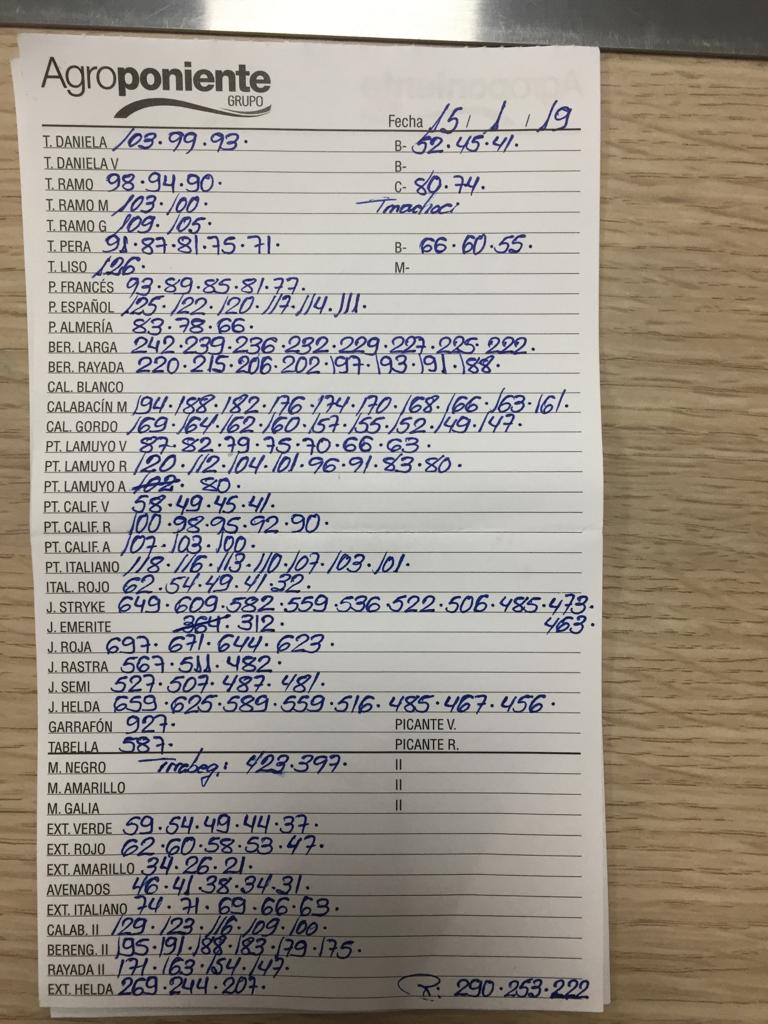 Agroponiente
GRUPO
Fecha 15 / 1 / 19
T. DANIELA 103·99·93· B- 52·45·41·
T. DANIELA V B-
T. RAMO 98·94·90· C- 80·74·
T. RAMO M 103·100·
T. RAMO G 109·105·
T. PERA 91·87·81·75·71· B- 66·60·55·
T. LISO 126· M-
P. FRANCÉS 93·89·85·81·77·
P. ESPAÑOL 125·122·120·117·114·111·
P. ALMERÍA 83·78·66·
BER. LARGA 242·239·236·232·229·227·225·222·
BER. RAYADA 220·215·206·202·197·193·191·188·
CAL. BLANCO
CALABACÍN M 194·188·182·176·174·170·168·166·163·161·
CAL. GORDO 169·164·162·160·157·155·152·149·147·
PT. LAMUYO V 87·82·79·75·70·66·63·
PT. LAMUYO R 120·112·104·101·96·91·83·80·
PT. LAMUYO A 102· 80·
PT. CALIF. V 58·49·45·41·
PT. CALIF. R 100·98·95·92·90·
PT. CALIF. A 107·103·100·
PT. ITALIANO 118·116·113·110·107·103·101·
ITAL. ROJO 62·54·49·41·32·
J. STRYKE 649·609·582·559·536·522·506·485·473·
J. EMERITE 364· 312· 463·
J. ROJA 697·671·644·623·
J. RASTRA 567·511·482·
J. SEMI 527·507·487·481·
J. HELDA 659·625·589·559·516·485·467·456·
GARRAFÓN 927· PICANTE V.
TABELLA 587· PICANTE R.
M. NEGRO 423·397· II
M. AMARILLO II
M. GALIA II
EXT. VERDE 59·54·49·44·37·
EXT. ROJO 62·60·58·53·47·
EXT. AMARILLO 34·26·21·
AVENADOS 46·41·38·34·31·
EXT. ITALIANO 74·71·69·66·63·
CALAB. II 129·123·116·109·100·
BERENG. II 195·191·188·183·179·175·
RAYADA II 171·163·154·147·
EXT. HELDA 269·244·207· R: 290·253·222